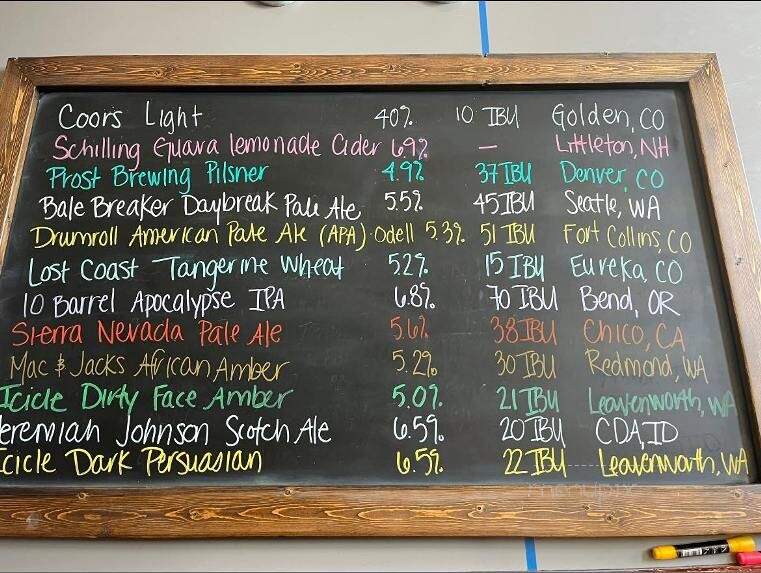 Coors Light 40% 10 IBU Golden, CO
Schilling Guava lemonade Cider 6.9% — Littleton, NH
Prost Brewing Pilsner 4.9% 37 IBU Denver, CO
Bale Breaker Daybreak Pale Ale 5.5% 45 IBU Seatle, WA
Drumroll American Pale Ale (APA) Odell 5.3% 51 IBU Fort Collins, CO
Lost Coast Tangerine Wheat 52% 15 IBU Eureka, CO
10 Barrel Apocalypse IPA 6.8% 70 IBU Bend, OR
Sierra Nevada Pale Ale 5.6% 38 IBU Chico, CA
Mac & Jacks African Amber 5.2% 30 IBU Redmond, WA
Icicle Dirty Face Amber 5.0% 21 IBU Leavenworth, WA
Jeremiah Johnson Scotch Ale 6.5% 20 IBU CDA, ID
Icicle Dark Persuasian 6.5% 22 IBU Leavenworth, WA